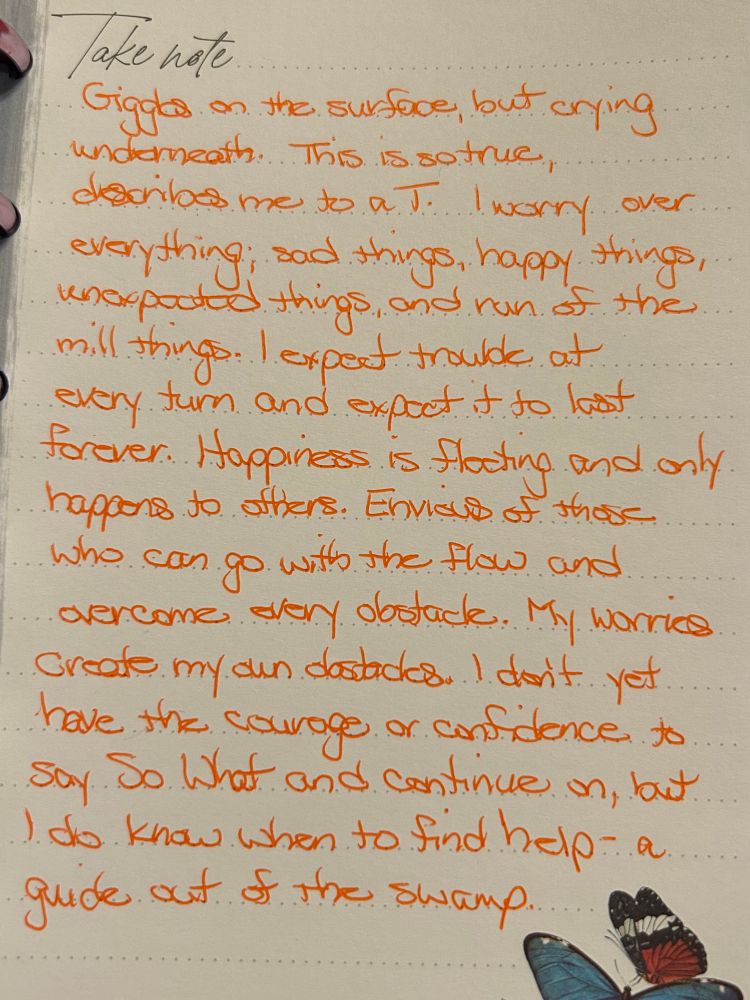 Take note
Giggles on the surface, but crying
underneath. This is so true,
describes me to a T. I worry over
everything; sad things, happy things,
unexpected things, and run of the
mill things. I expect trouble at
every turn and expect it to last
forever. Happiness is fleeting and only
happens to others. Envious of those
who can go with the flow and
overcome every obstacle. My worries
create my own obstacles. I don't yet
have the courage or confidence to
say So What and continue on, but
I do know when to find help - a
guide out of the swamp.